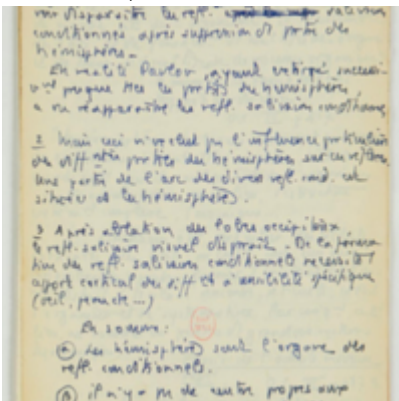 voir disparaître les réfl. salivaires
conditionnés après suppression d' partie des
hémisphères.
En réalité Pavlov, ayant extirpé successi-
vt presque ttes les parties des hémisphères,
a vu réapparaître les réfl. salivaires conditionn
2 Mais ceci n'exclut pas l'influence particulière
des difftes parties des hémisphères sur ces réflexes,
une partie de l'arc des divers réfl. cond. est
située ds les hémisphères).
3 Après ablation des lobes occipitaux
le réfl. salivaire visuel disparaît. De la forma
tion des réfl. salivaires conditionnels nécessité
apport cortical des diff et à sensibilité spécifique
(œil, ...)
En somme :
(a) Les hémisphères sont l'organe des
réfl. conditionnels.
(b) il n'y a pas de centre propres aux